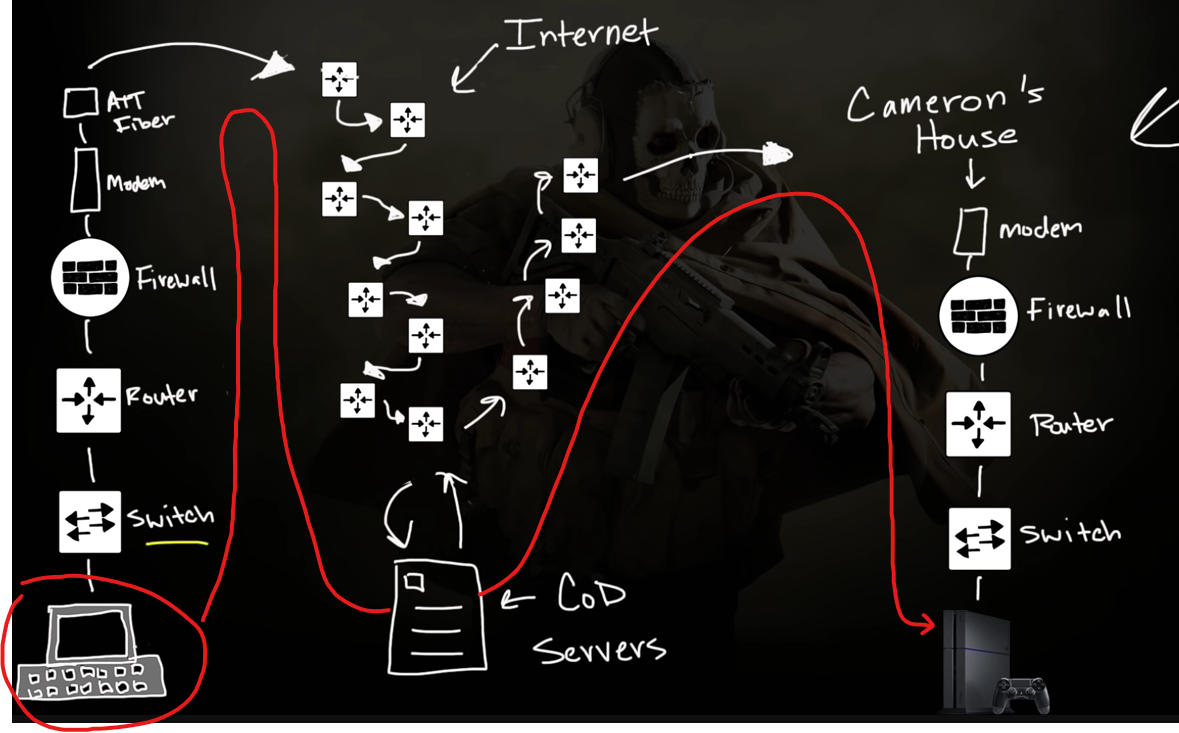 Internet
AT&T
Fiber
Modem
Firewall
Router
Switch
CoD
Servers
Cameron's
House
Modem
Firewall
Router
Switch